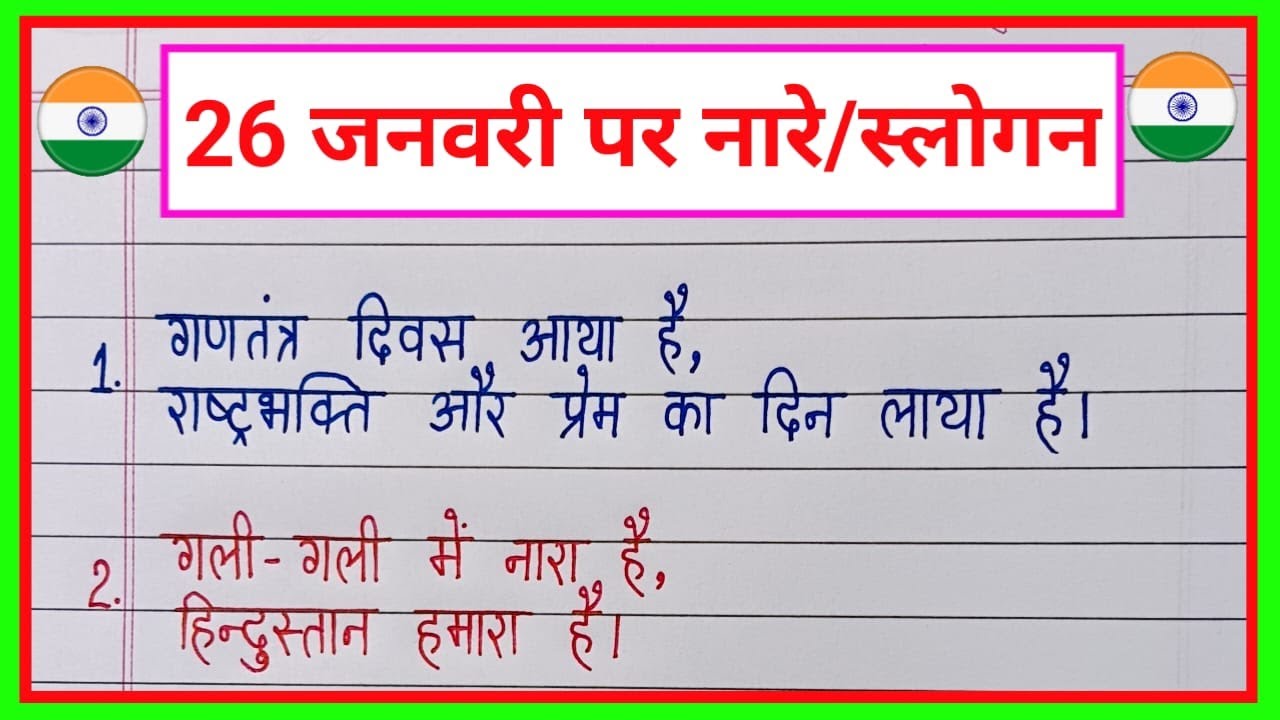 26 जनवरी पर नारे/स्लोगन
1. गणतंत्र दिवस आया है,
राष्ट्रभक्ति और प्रेम का दिन लाया है।
2. गली-गली में नारा है,
हिन्दुस्तान हमारा है।